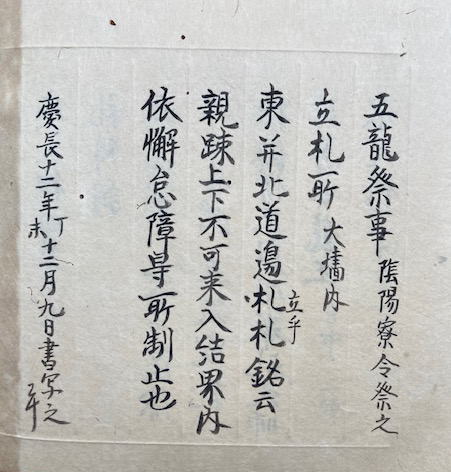 五龍祭事 陰陽寮令祭之
立札所 大墻内
東并北道邊札立乎札銘云
親踈上下不可来入結界内
依懈怠障㝵所制止也
慶長十二年丁未十二月九日書写之